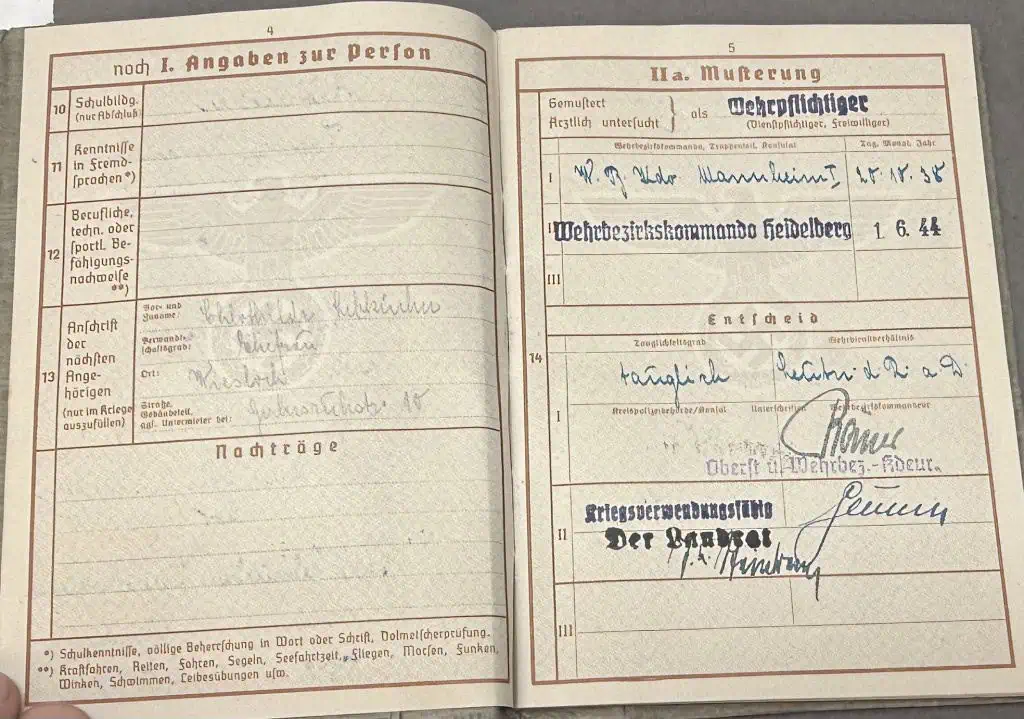 4
noch I. Angaben zur Person
10 Schulbildg.
(nur Abschluß)
11 Kenntnisse
in Fremd-
sprachen *)
12 Berufliche,
techn. oder
sportl. Be-
fähigungs-
nachweise
**)
13 Anschrift
der
nächsten
Ange-
hörigen
(nur im Kriege
auszufüllen)
Vor- und
Zuname:
Verwandt-
schaftsgrad: Ehefrau
Ort: Wiesloch
Straße,
Gebäudeteil,
ggf. Untermieter bei: 10
Nachträge
*) Schulkenntnisse, völlige Beherrschung in Wort oder Schrift, Dolmetscherprüfung.
**) Kraftfahren, Reiten, Fahren, Segeln, Seefahrtzeit, Fliegen, Morsen, Funken,
Winken, Schwimmen, Leibesübungen usw.
5
IIa. Musterung
Gemustert
Ärztlich untersucht } als Wehrpflichtiger
(Dienstpflichtiger, Freiwilliger)
Wehrbezirkskommando, Truppenteil, Konsulat Tag, Monat, Jahr
I W. B. Kdo Mannheim I 38
II Wehrbezirkskommando Heidelberg 1. 6. 44
III
Entscheid
14
Tauglichkeitsgrad Wehrdienstverhältnis
tauglich Leutn. d. R. a. D.
I Kreispolizeibehörde/Konsul Unterschriften Wehrbezirkskommandeur
Oberst u. Wehrbez.-Kdeur.
II Kriegsverwendungsfähig
Der Landrat
III